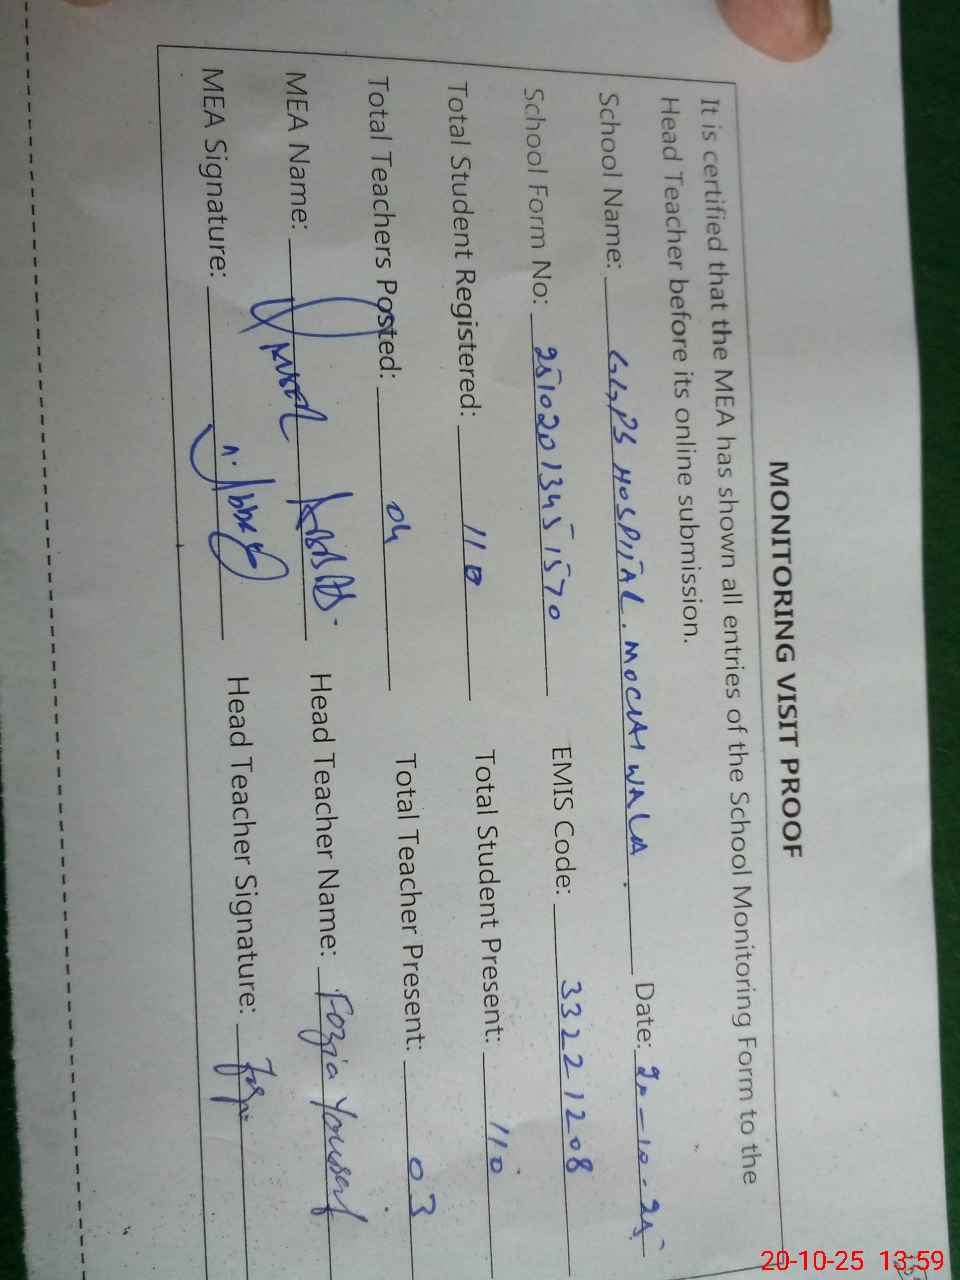 MONITORING VISIT PROOF
It is certified that the MEA has shown all entries of the School Monitoring Form to the
Head Teacher before its online submission.
School Name: GGPS HOSPITAL. MOCHI WALA Date: 20-10-25
School Form No: 25102013451570 EMIS Code: 33221208
Total Student Registered: 110 Total Student Present: 110
Total Teachers Posted: 04 Total Teacher Present: 03
MEA Name: Head Teacher Name: Fozia Yousaf
MEA Signature: Head Teacher Signature:
20-10-25 13:59